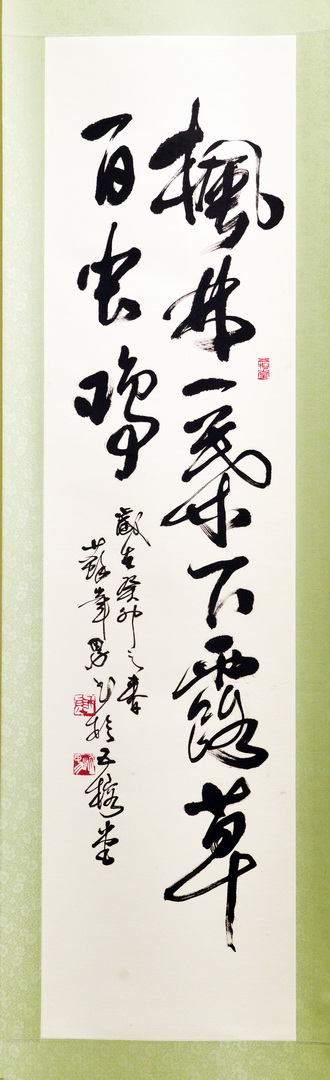 楓林一葉下露草
百虫鳴
歲在癸卯之春
蘇章男書於五榕堂